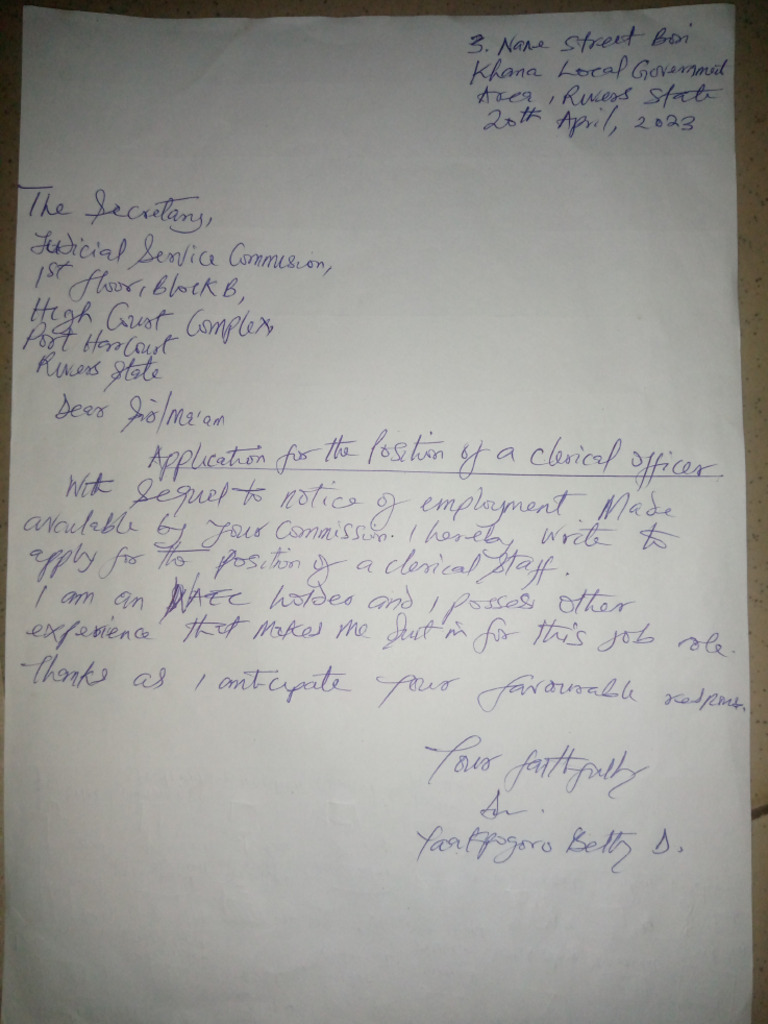 3. Nane Street Bori
Khana Local Government
Area, Rivers State
20th April, 2023
The Secretary,
Judicial Service Commission,
1st floor, Block B,
High Court Complex,
Port Harcourt
Rivers State
Dear Sir/Ma'am
Application for the Position of a clerical officer
With sequel to notice of employment Made
available by your Commission. I hereby write to
apply for the position of a clerical staff.
I am an holder and I possess other
experience that makes me in for this job role.
Thanks as I anticipate your favourable response.
Your faithfully
Betty D.